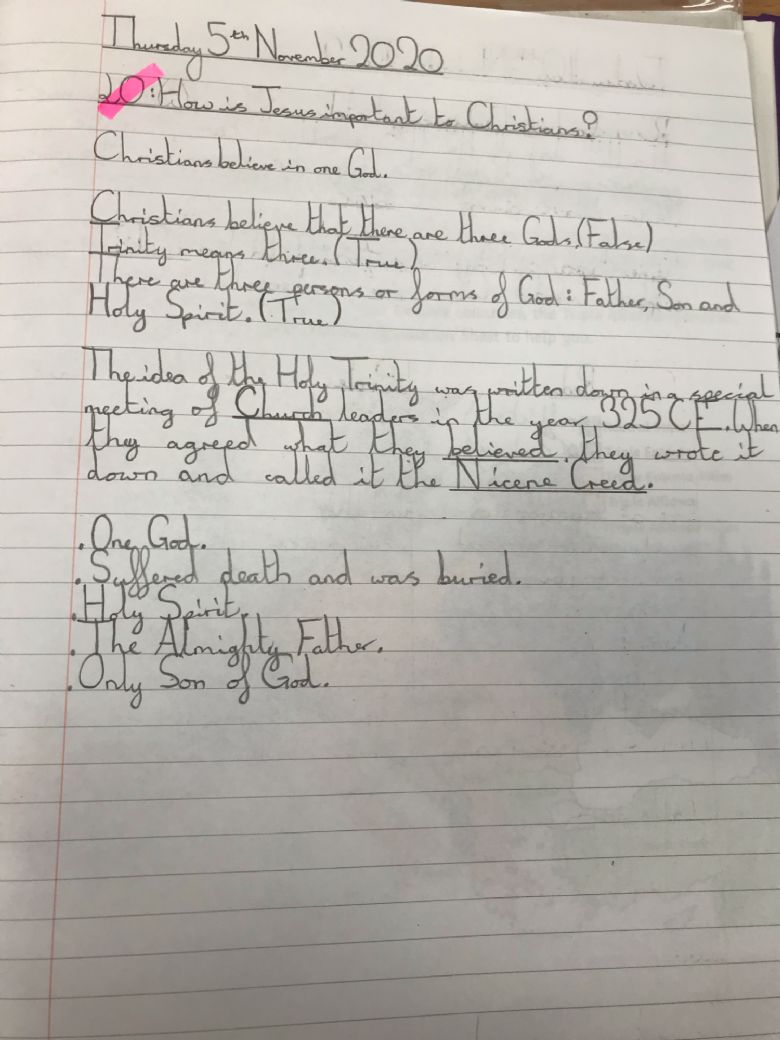 Thursday 5th November 2020
LO: How is Jesus important to Christians?
Christians believe in one God.
Christians believe that there are three Gods. (False)
Trinity means three. (True)
There are three persons or forms of God: Father, Son and
Holy Spirit. (True)
The idea of the Holy Trinity was written down in a special
meeting of Church leaders in the year 325 CE. When
they agreed what they believed, they wrote it
down and called it the Nicene Creed.
. One God.
. Suffered death and was buried.
. Holy Spirit.
. The Almighty Father.
. Only Son of God.